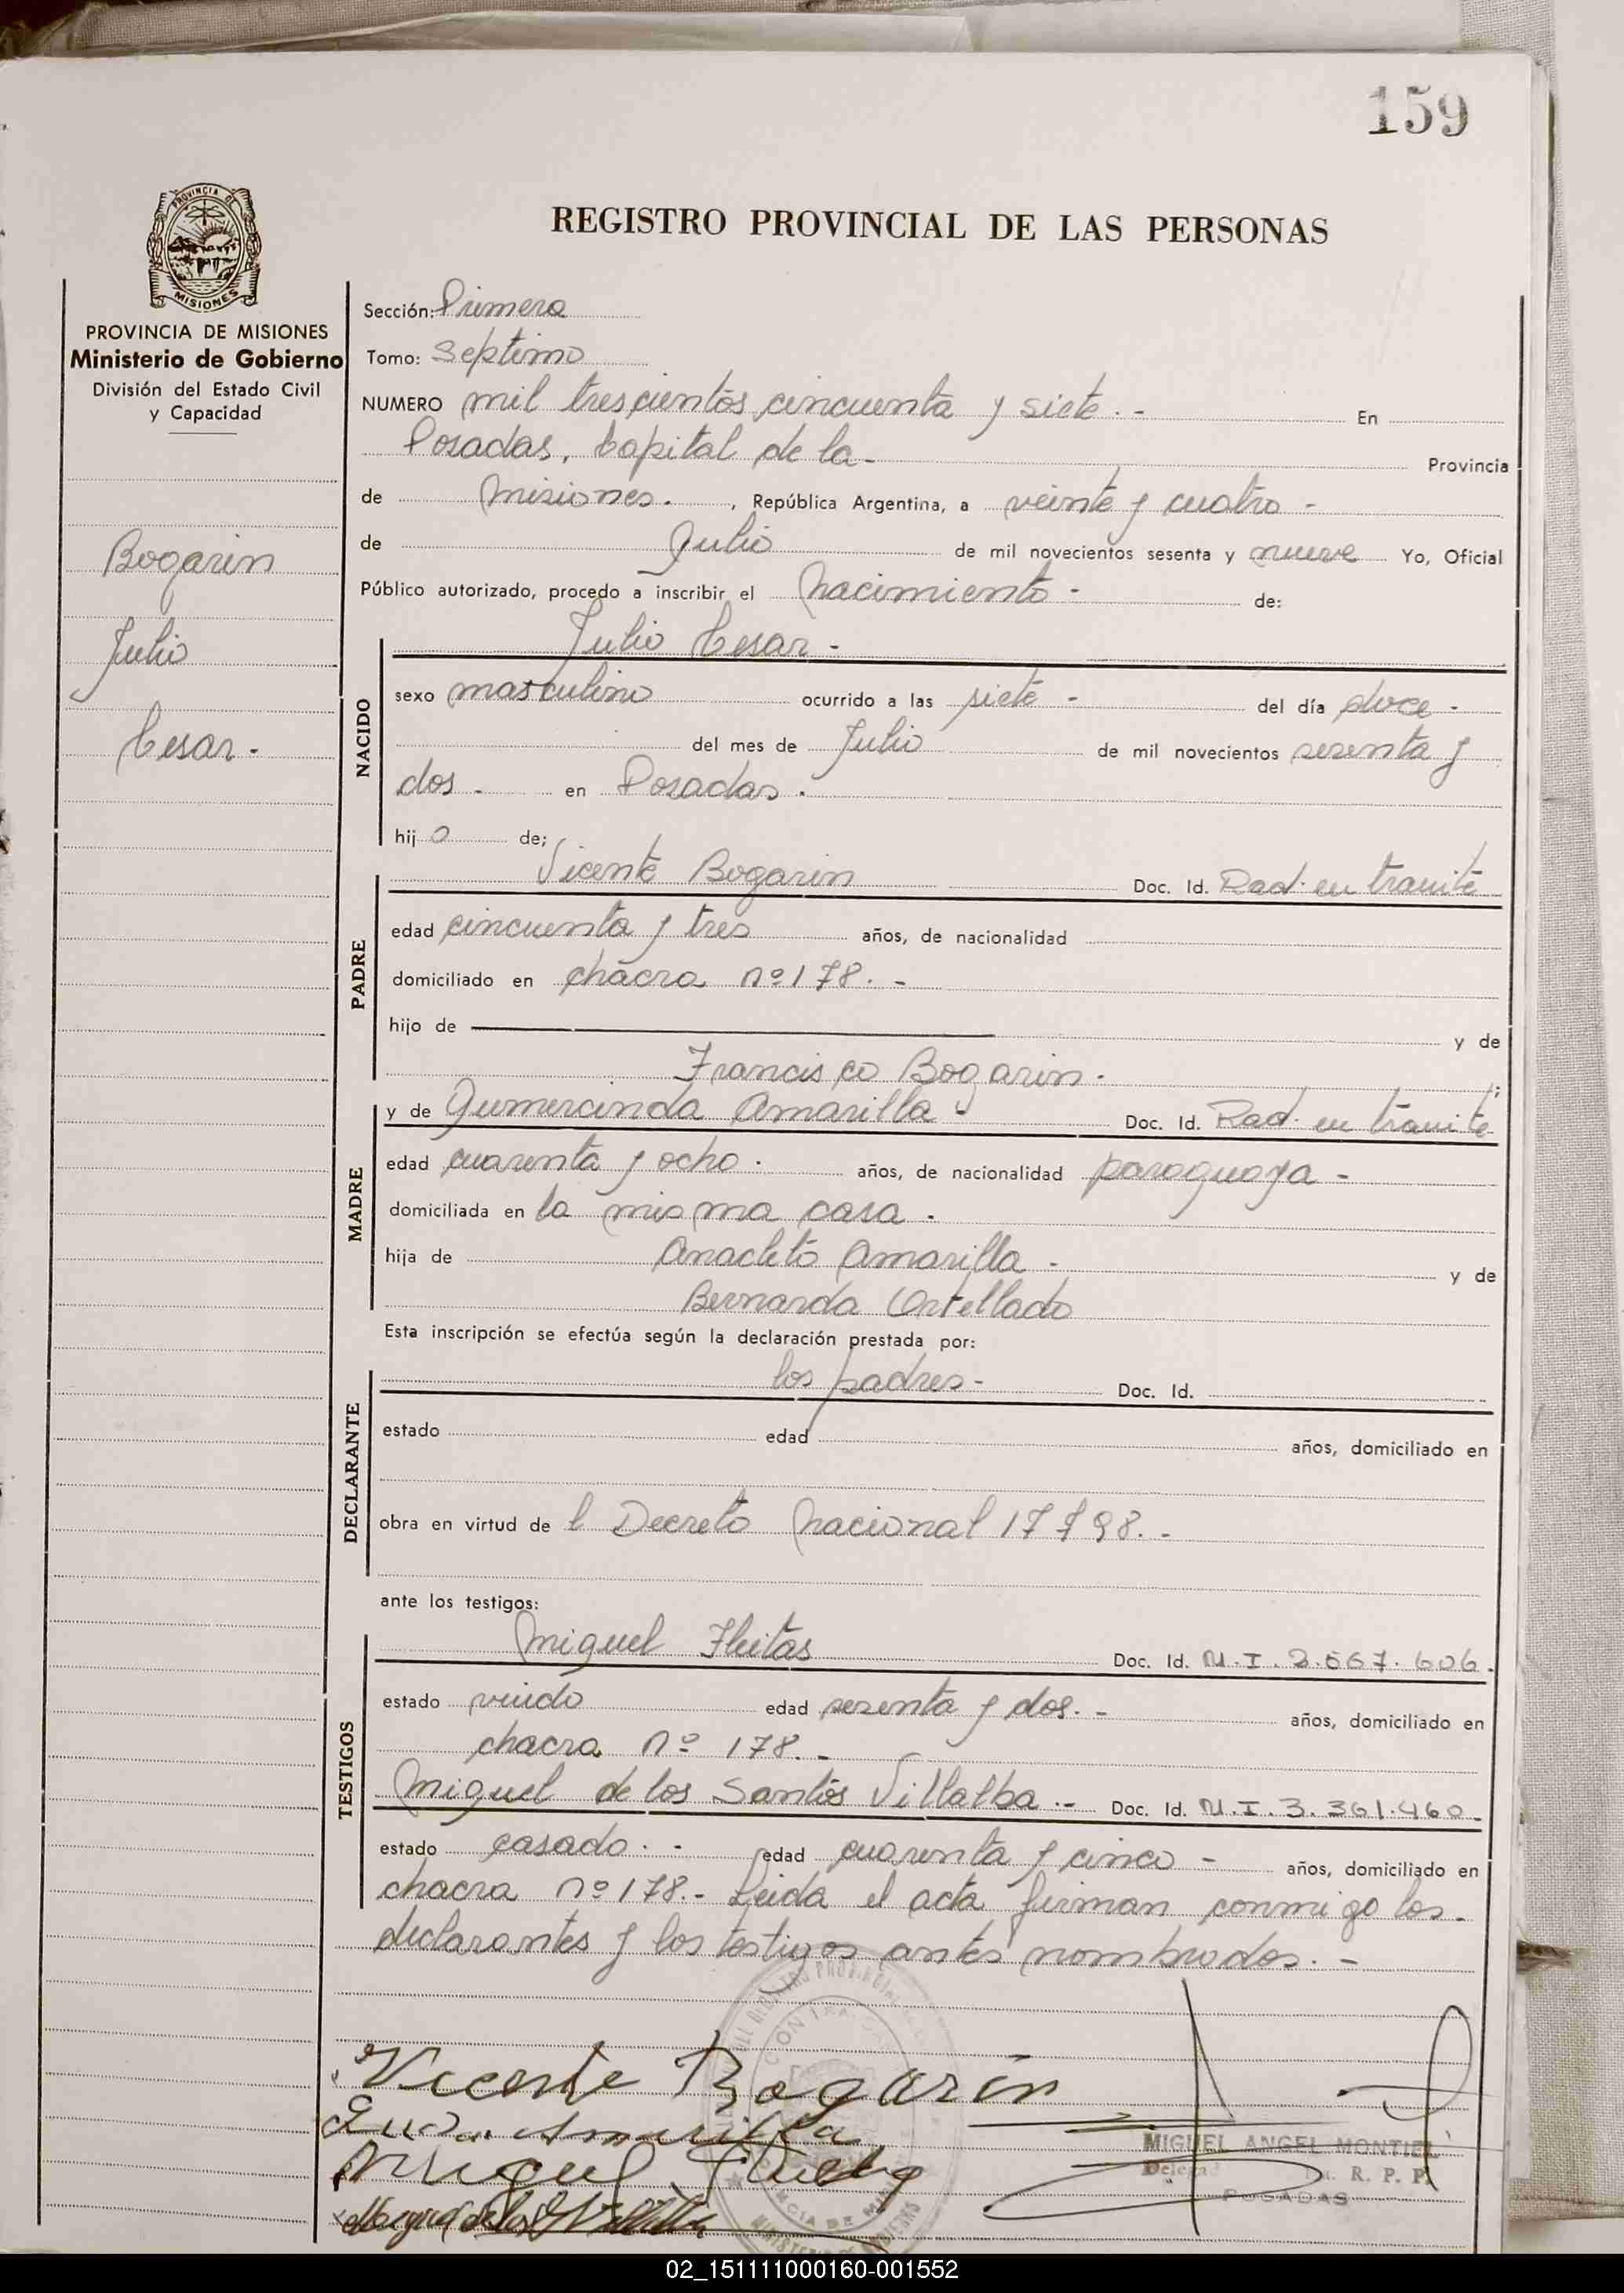 159
REGISTRO PROVINCIAL DE LAS PERSONAS
PROVINCIA DE
MISIONES
PROVINCIA DE MISIONES
Ministerio de Gobierno
División del Estado Civil
y Capacidad
Bogarin
Julio
Cesar.-
Sección: Primera
Tomo: Septimo
NUMERO mil trescientos cincuenta y siete.- En
Posadas, Capital de la- Provincia
de Misiones. , República Argentina, a veinte y cuatro-
de Julio de mil novecientos sesenta y nueve Yo, Oficial
Público autorizado, procedo a inscribir el Nacimiento- de:
Julio Cesar-
NACIDO
sexo masculino ocurrido a las siete- del día doce-
del mes de Julio de mil novecientos sesenta y
dos- en Posadas.
hijo de;
PADRE
Vicente Bogarin Doc. Id. Rad. en tramite
edad cincuenta y tres años, de nacionalidad
domiciliado en chacra nº 178.-
hijo de y de
Francisco Bogarin.
MADRE
y de Gumercinda Amarilla- Doc. Id. Rad. en tramite
edad cuarenta y ocho. años, de nacionalidad paraguaya-
domiciliada en la misma casa.
hija de Anacleto Amarilla- y de
Bernarda Ortellado
Esta inscripción se efectúa según la declaración prestada por:
DECLARANTE
los padres- Doc. Id.
estado edad años, domiciliado en
obra en virtud de l Decreto Nacional 17798.-
ante los testigos:
TESTIGOS
Miguel Fleitas Doc. Id. M.I. 2.567.606.
estado viudo edad sesenta y dos.- años, domiciliado en
chacra nº 178.-
Miguel de los Santos Villalba.- Doc. Id. M.I. 3.361.460-
estado casado.- edad cuarenta y cinco- años, domiciliado en
chacra nº 178.- Leida el acta firman conmigo los-
declarantes y los testigos antes nombrados.-
Vicente Bogarin
Amarilla
Miguel
MIGUEL ANGEL MONTIEL
R. P. P.
POSADAS
02_151111000160-001552